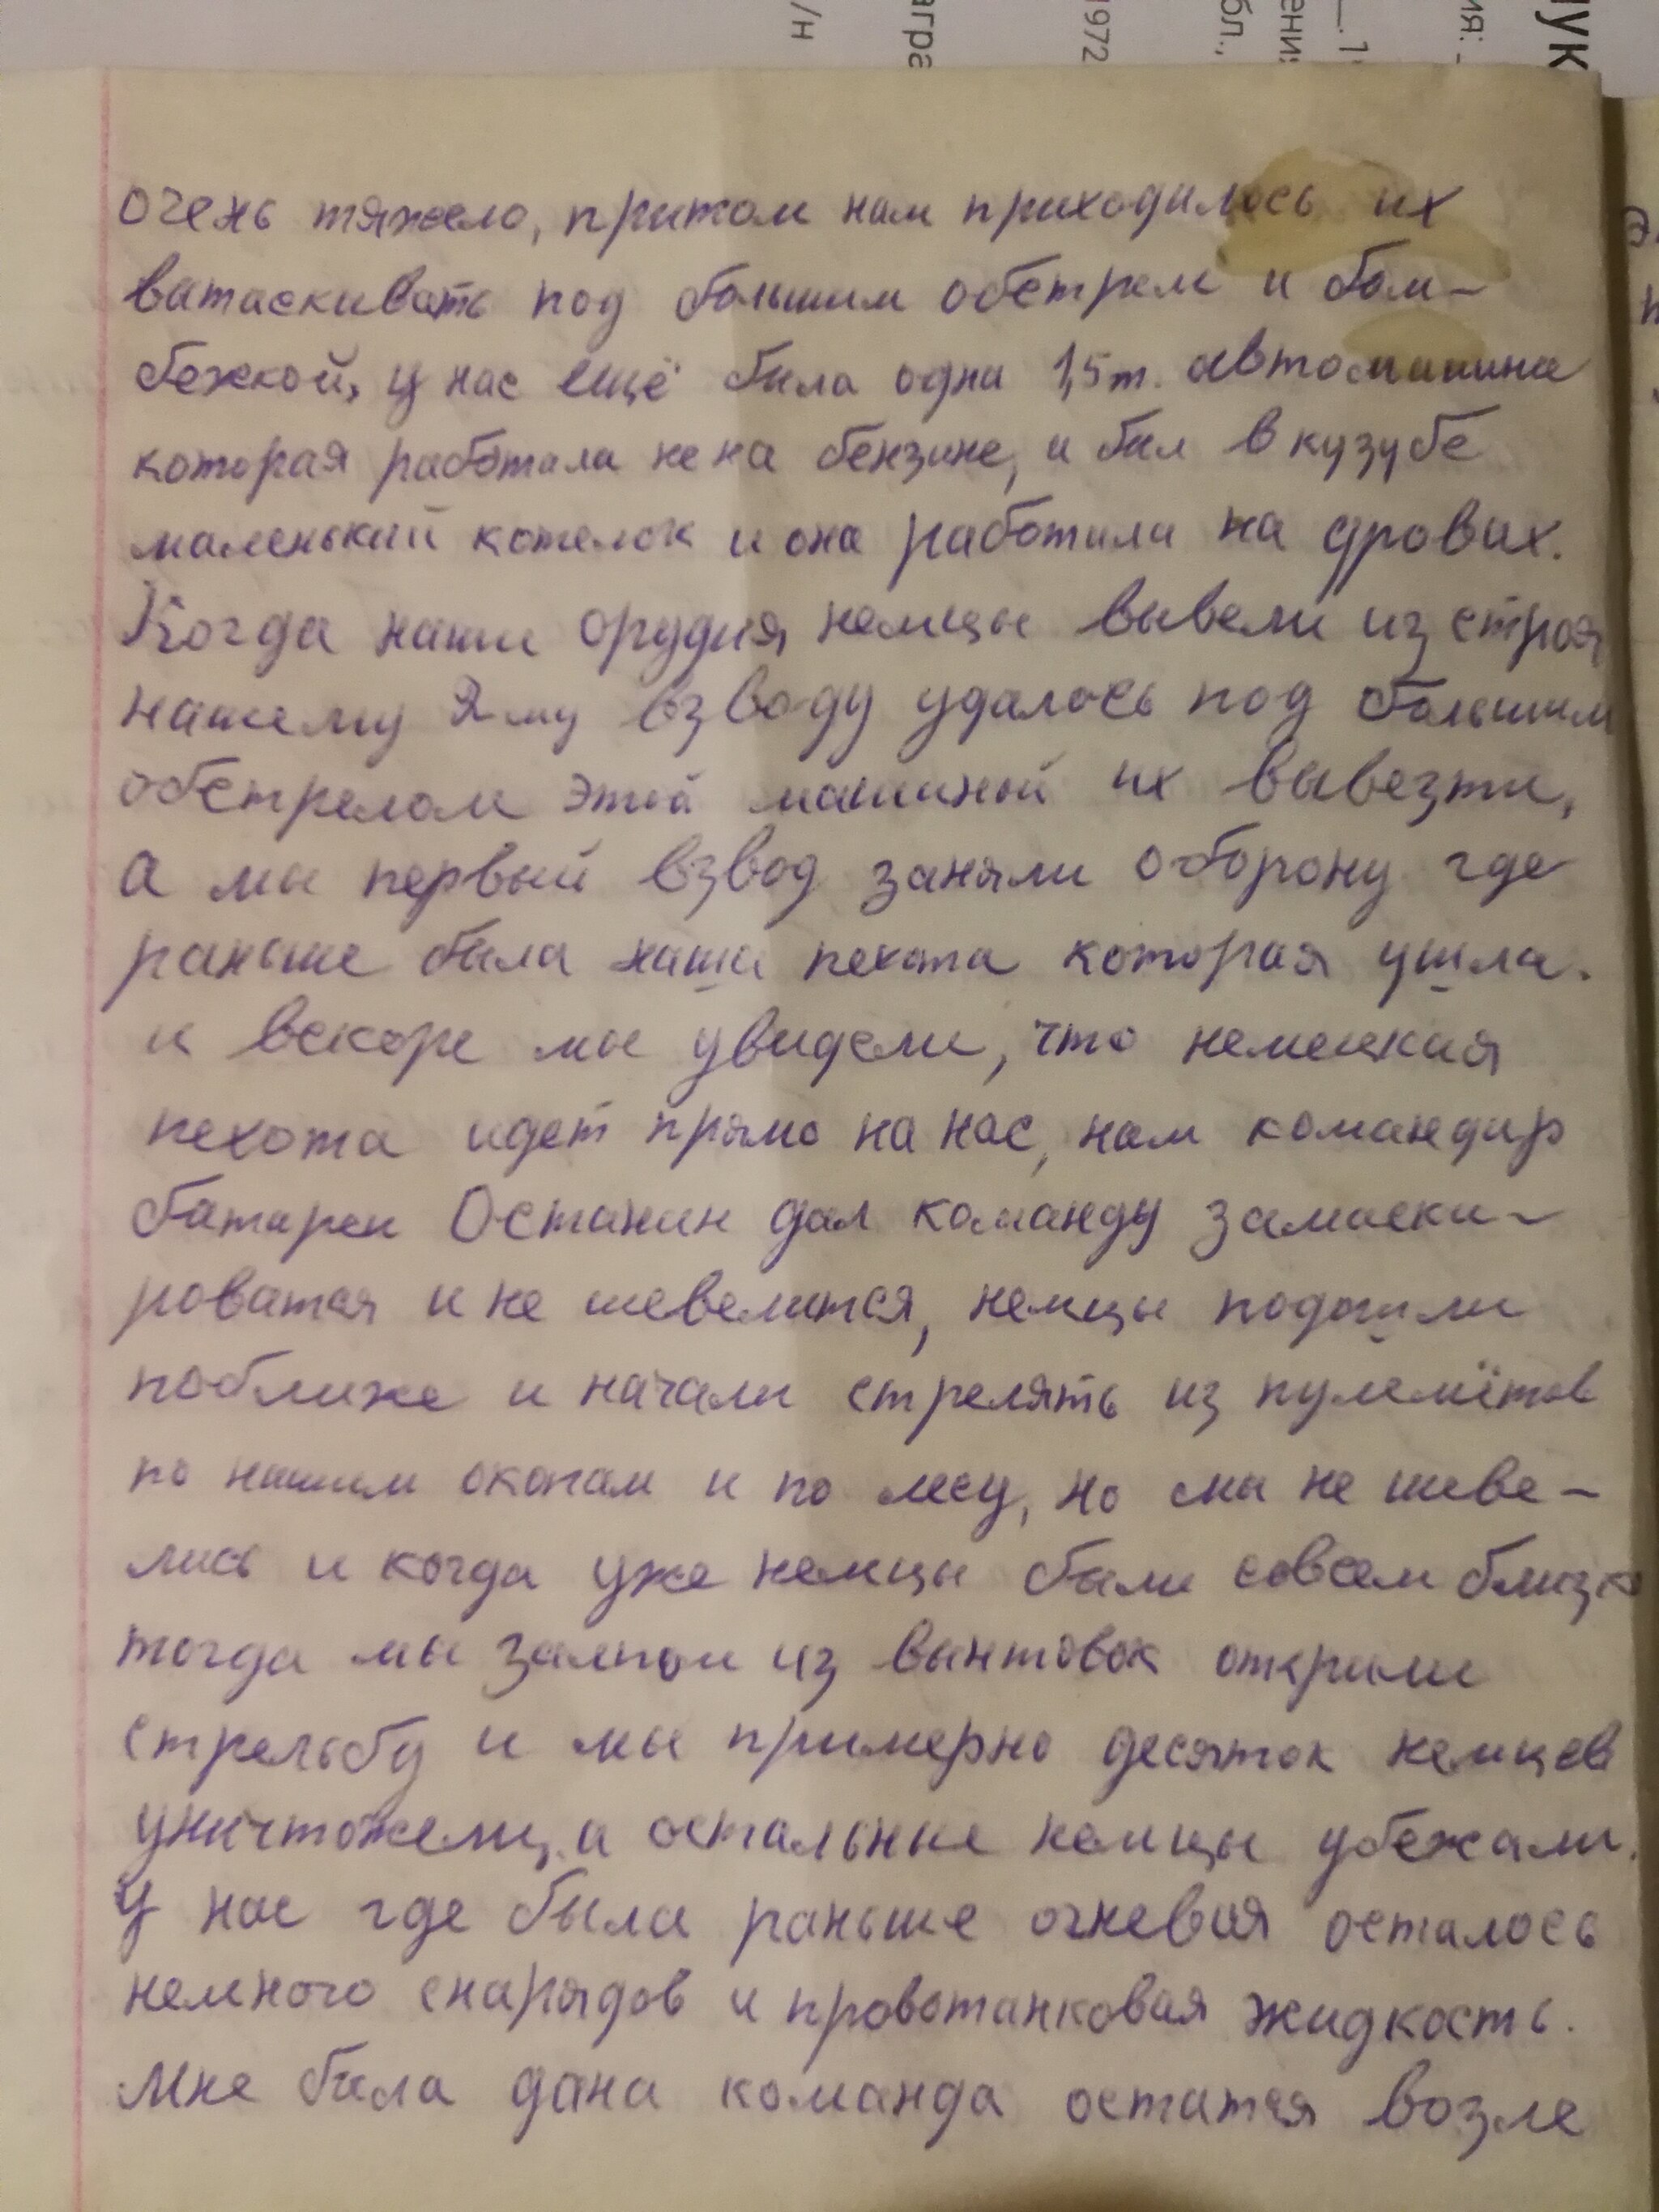 /н
агра
1972
бл.,
ени
1
ия:
ук
очень тяжело, притом нам приходилось их
ватаскивать под большим обстрелом и бом-
бежкой, у нас ещё была одна 1,5т. автомашина
которая работала не на бензине, и был в кузубе
маленький котелок и она работала на дровах.
Когда наши орудия, немцы вывели из строя
нашему 2му взводу удалось под большим
обстрелом этой машиной их вывезти,
а мы первый взвод заняли оборону где
раньше была наша пехота которая ушла.
и вскоре мы увидели, что немецкая
пехота идет прямо на нас, нам командир
батареи Останин дал команду замаски-
роватся и не шевелится, немцы подошли
поближе и начали стрелять из пулемётов
по нашим окопам и по лесу, но мы не шеве-
лись и когда уже немцы были совсем близко
тогда мы залпом из винтовок открыли
стрельбу и мы примерно десяток немцев
уничтожели, а остальные немцы убежали.
У нас где была раньше огневая осталось
немного снарядов и провотанковая жидкость.
Мне была дана команда остатся возле